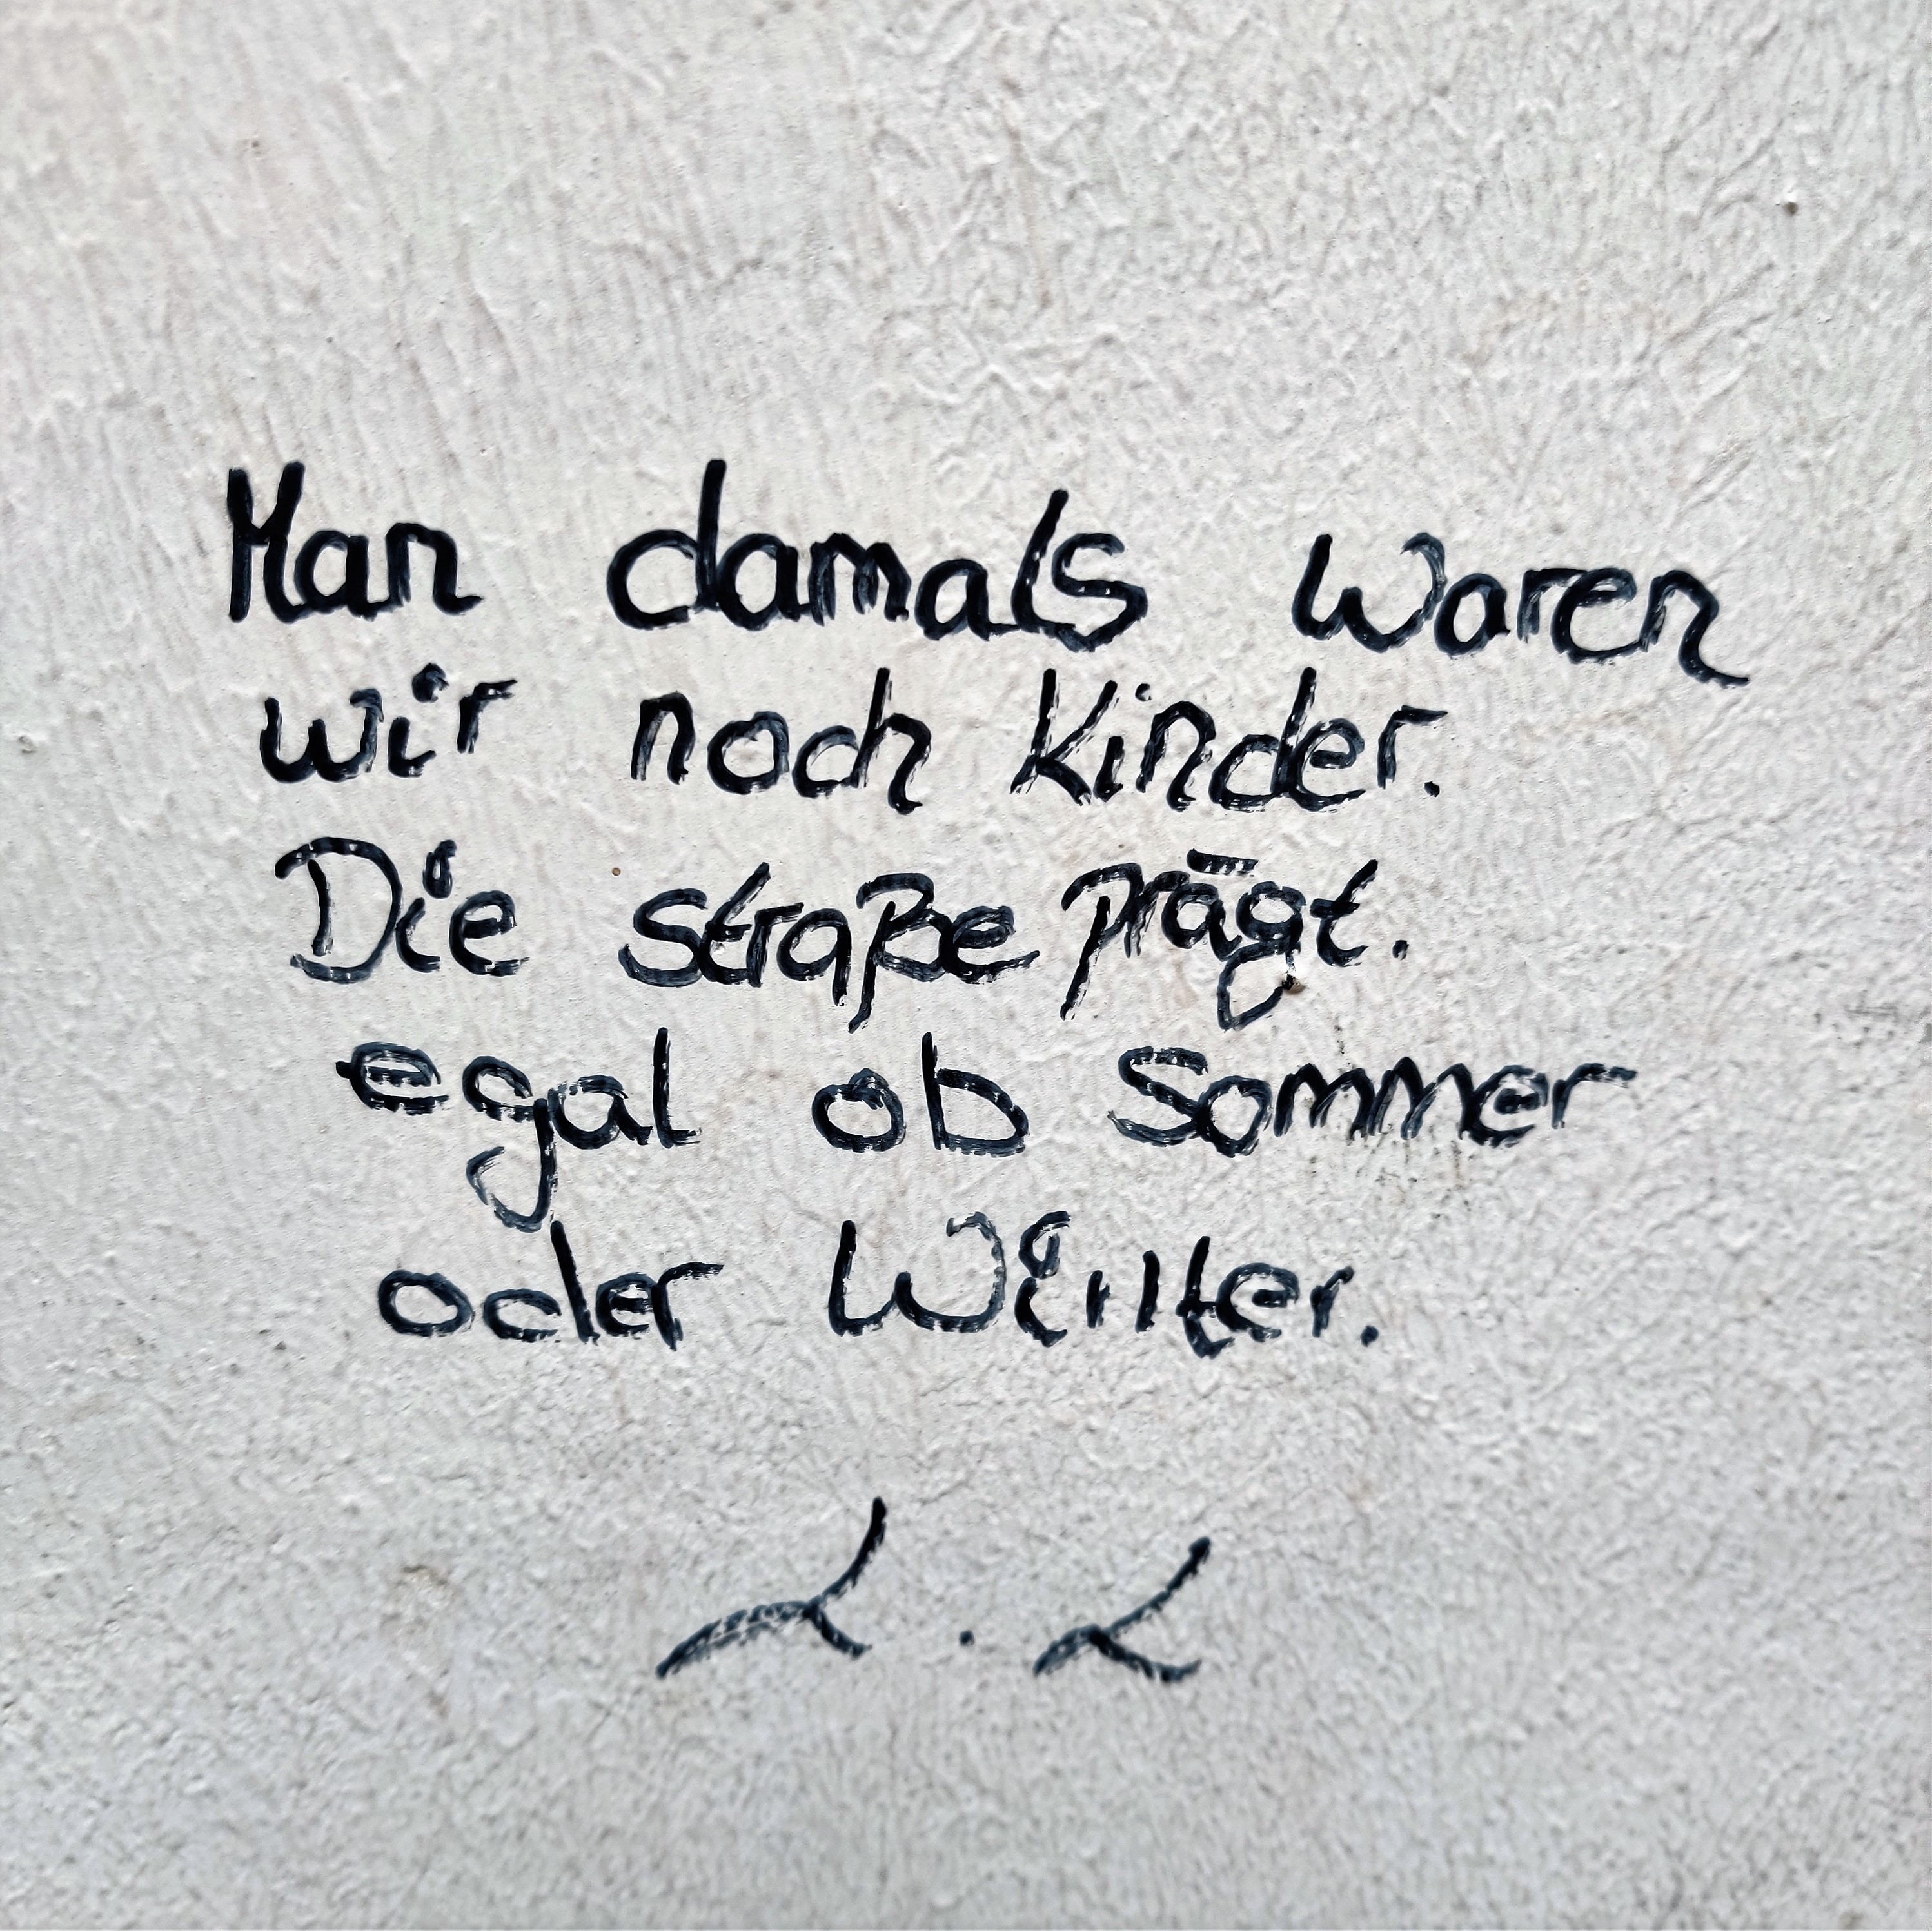 Man damals waren
wir noch Kinder.
Die straße prägt.
egal ob Sommer
oder Winter.
L.L